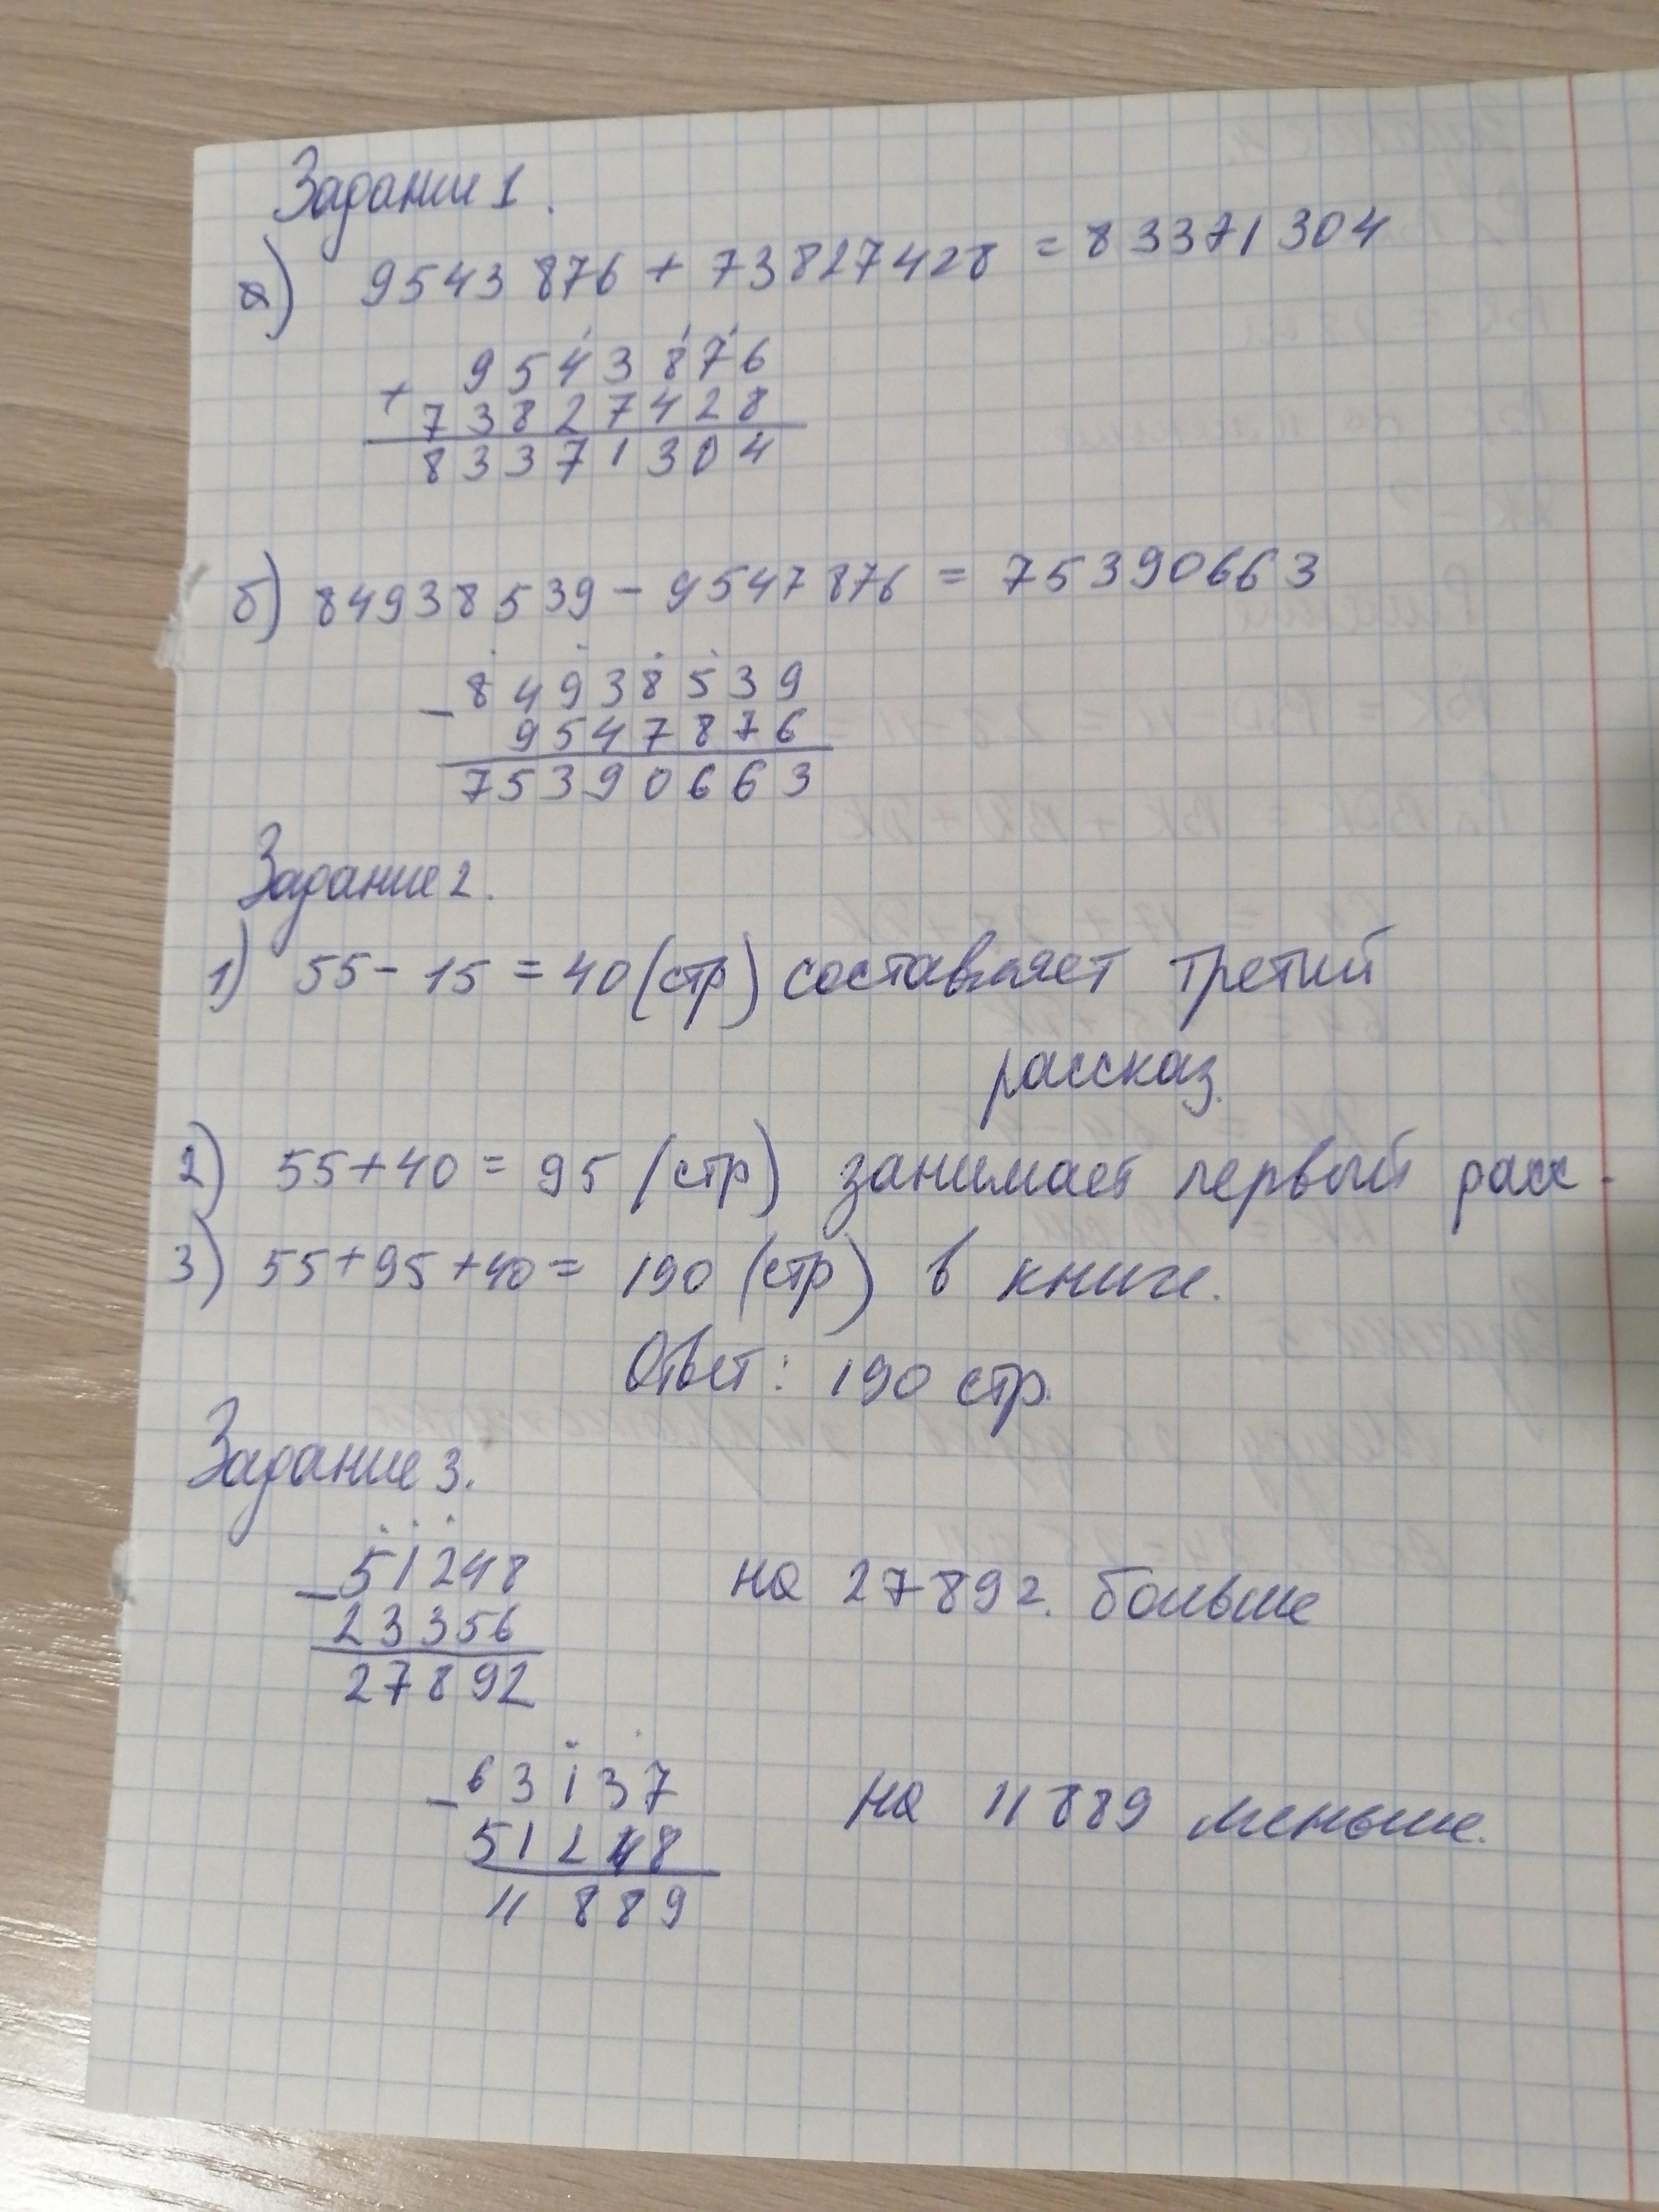 Задание 1.
а) 9543876 + 73827428 = 83371304
9543876
+
73827428
83371304
б) 84938539 - 9547876 = 75390663
84938539
-
9547876
75390663
Задание 2.
1) 55 - 15 = 40 (стр) составляет третий
рассказ.
2) 55 + 40 = 95 (стр) занимает первый расс.
3) 55 + 95 + 40 = 190 (стр) в книге.
Ответ: 190 стр.
Задание 3.
51248
- на 27892. больше
23356
27892
63137
- на 11889 меньше.
51248
11889